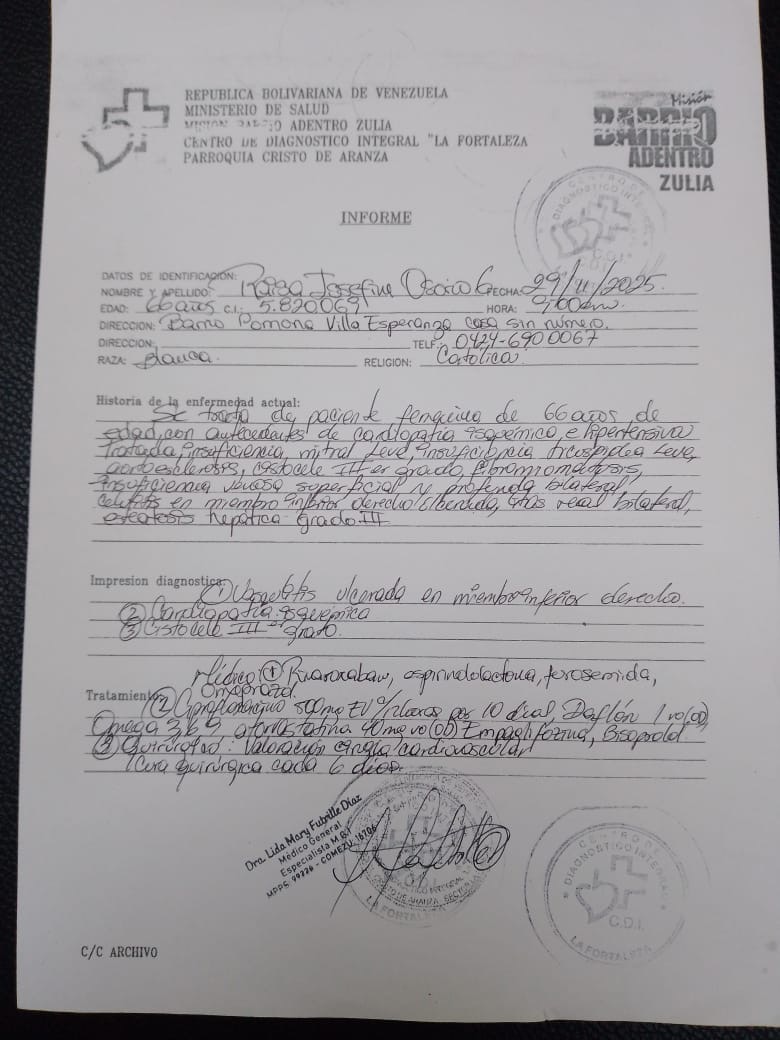 REPUBLICA BOLIVARIANA DE VENEZUELA
MINISTERIO DE SALUD
MISION BARRIO ADENTRO ZULIA
CENTRO DE DIAGNOSTICO INTEGRAL "LA FORTALEZA
PARROQUIA CRISTO DE ARANZA
Misión
BARRIO
ADENTRO
ZULIA
CENTRO DE DIAGNOSTICO INTEGRAL
C.D.I.
INFORME
DATOS DE IDENTIFICACIÓN:
NOMBRE Y APELLIDO: Raiza Josefina Osorio G FECHA: 29/11/2025.
EDAD: 66 años C.I.: 5.820.069 HORA: 9:00am.
DIRECCION: Barrio Pomona Villa Esperanza casa sin número.
DIRECCION: TELF.: 0424-6900067
RAZA: Blanca. RELIGION: Católica
Historia de la enfermedad actual:
Se trata de paciente femenina de 66 años de
edad, con antecedentes de cardiopatía isquémica, e hipertensiva
tratada, insuficiencia, mitral Leve, insuficiencia tricuspidea Leve,
aortoesclerosis, cistocele III er grado, fibromatosis,
insuficiencia venosa superficial y profunda bilateral,
celulitis en miembro inferior derecho renal bilateral,
esteatosis hepática grado III
Impresion diagnostica: ① Vasculitis ulcerada en miembro inferior derecho.
② Cardiopatía isquémica
③ Cistocele III er grado.
Médico: ① Rivaroxaban, espirinolactona, furosemida,
omeprazol.
Tratamiento: ② Ciprofloxacino 500mg EV c/12horas por 10 días, Daflón 1 vo (OD),
Omega 3,6,9 atorvastatina 40mg vo (OD) Empaglifozina, Bisoprolol
③ Quirúrgico: Valoración cirugía cardiovascular
Cura quirúrgica cada 6 días.
Dra. Lida Mary Fubrille Díaz
Médico General
Especialista M.G.I
MPPS: 99336 - COMEZU. 16706
LA FORTALEZA
CENTRO DE DIAGNOSTICO INTEGRAL
C.D.I.
LA FORTALEZA
C/C ARCHIVO